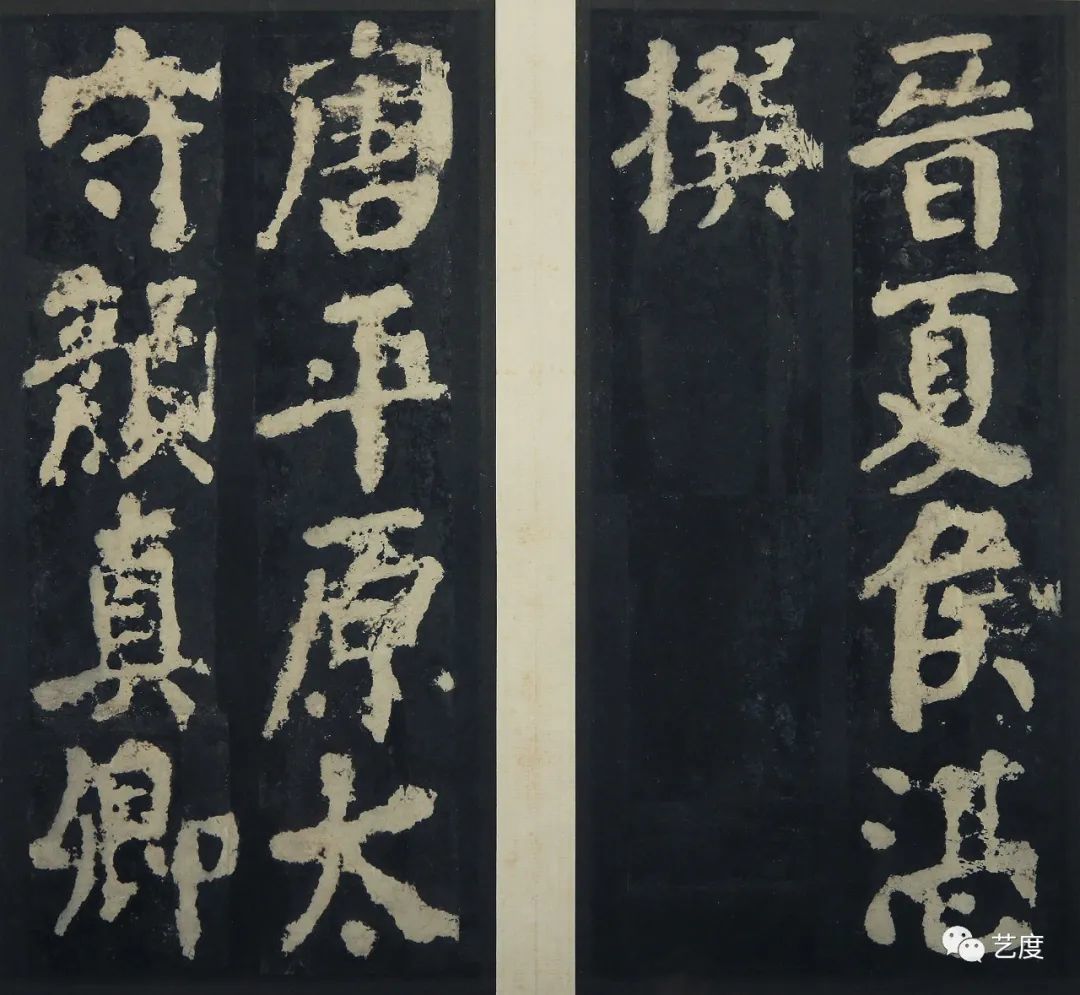 晋夏侯湛
撰
唐平原太
守颜真卿
艺度